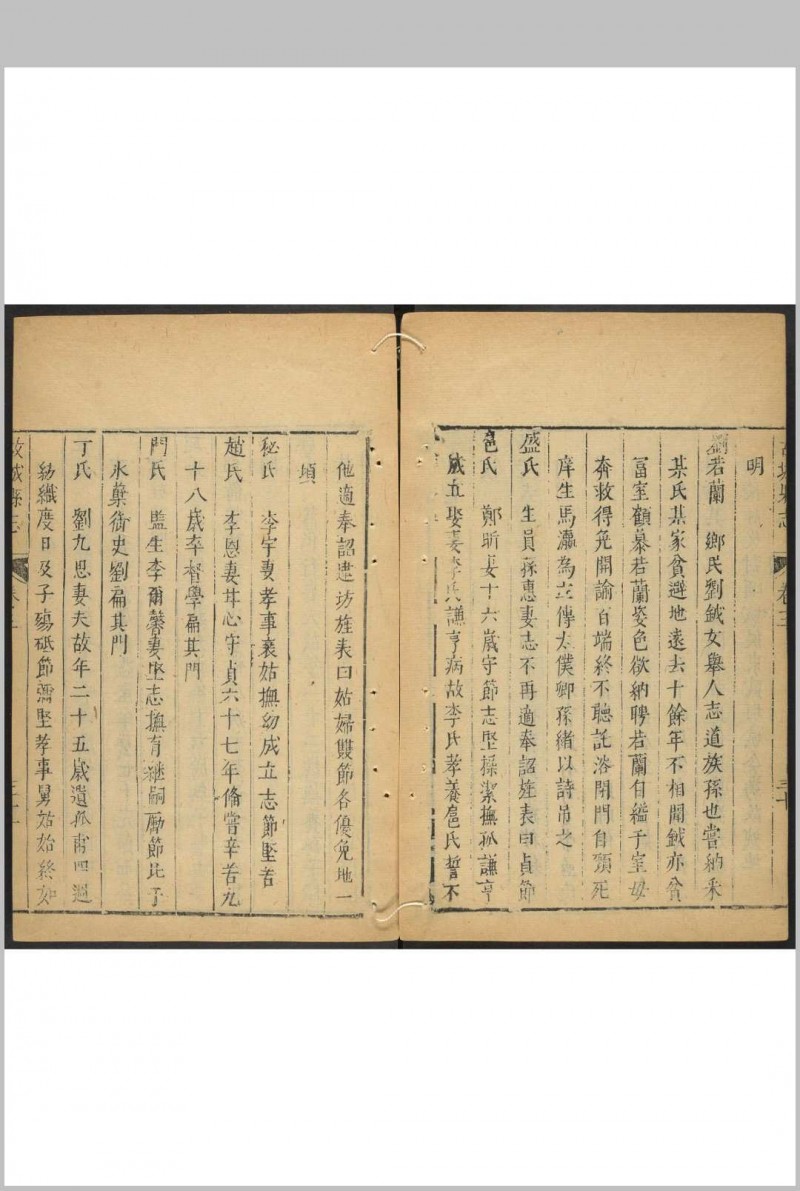 明
劉若蘭　鄉民劉鉞女舉人志道族孫也嘗納釆
某氏某家貧避地遠去十餘年不相聞鉞亦貧
冨室顧慕若蘭姿色欲納聘若蘭自縊于室母
奔救得免開諭百端終不聽託浴閉門自頸死
庠生馬灡為立傳太僕卿孫緒以詩吊之
盛氏　生員孫惠妻志不再適奉詔旌表曰貞節
扈氏　鄭昕妻十六歲守節志堅操潔撫孤謙亨
成立娶妻李氏謙亨病故李氏孝養扈氏誓不
他適奉詔建坊旌表曰姑婦雙節各優免地一
頃
秘氏　李宇妻孝事衰姑撫幼成立志節堅苦
趙氏　李恩妻甘心守貞六十七年備嘗辛苦九
十八歲卒督學扁其門
門氏　監生李爾馨妻堅志撫育繼嗣勵節氷子
氷蘗御史劉扁其門
丁氏　劉九思妻夫故年二十五歲遺孤甫四週
紡織度日及子殤砥節彌堅孝事舅姑始終如
故城縣志